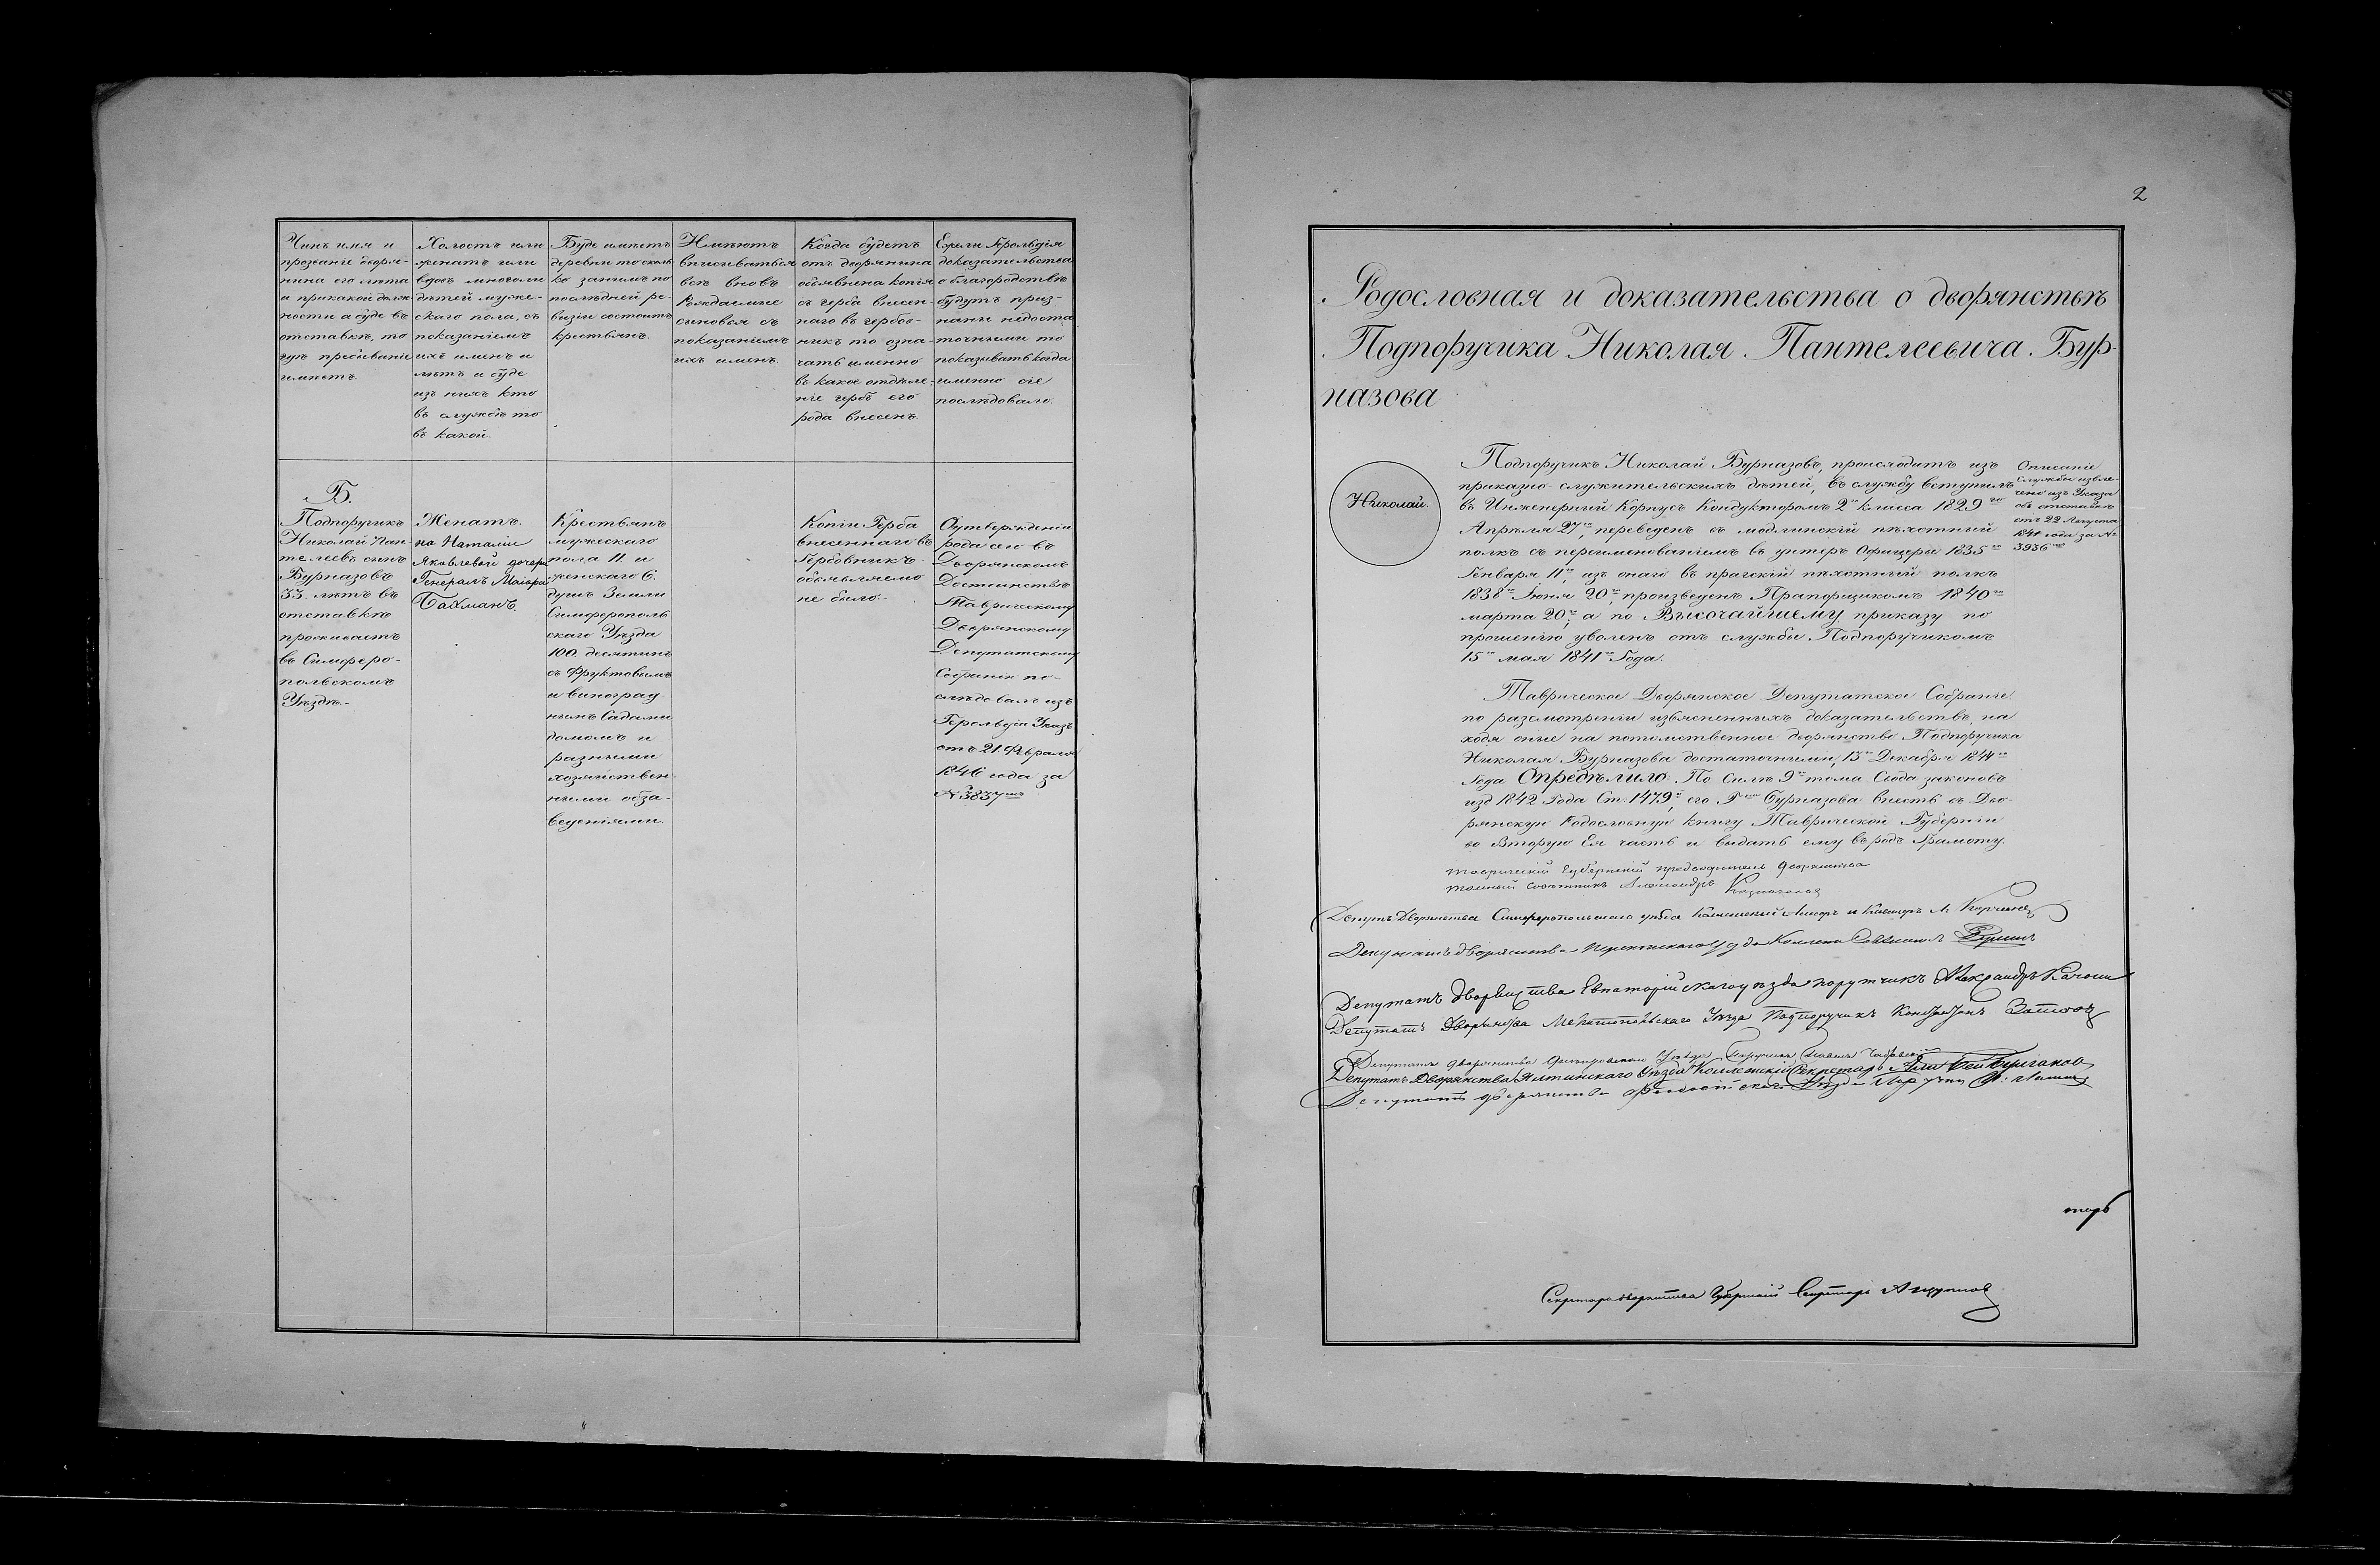 Чинъ имя и
прозваніе дворя-
нина его лѣта
и при какой долж
ности а буде въ
отставкѣ, то
гдѣ пребываніе
имѣетъ.
Холостъ или
женатъ или
вдовъ многоли
дѣтей муже-
скаго пола, съ
показаніемъ
ихъ именъ и
лѣтъ и буде
изъ нихъ кто
въ службѣ то
въ какой.
Буде имѣетъ
деревни то сколь
ко занимъ по
послѣдней ре-
визіи состоитъ
крестьянъ.
Имѣютъ
вписываться
всѣ вновь
Рождаемые
сыновья съ
показаніемъ
ихъ именъ.
Когда будетъ
отъ дворянина
объявлена копія
съ герба внесен-
наго въ гербов-
никъ то озна-
чать именно
въ какое отдѣле-
ніе гербъ его
рода внесенъ.
Ежели Герольдія
доказательства
о благородствѣ
будутъ приз-
наны недоста
точными то
показывать когда
именно сіе
послѣдовало.
Б.
Подпоручикъ
Николай Пан-
телеевъ сынъ
Бурназовъ
33. лѣтъ въ
отставкѣ
проживаетъ
въ Симферо-
польскомъ
Уѣздѣ.-
Женатъ.
на Наталіи
Яковлевой дочери
Генералъ Маіора
Бахманъ.
Крестьянъ
мужескаго
пола 11. и
женскаго 6.
душъ Земли
Симферополь
скаго Уѣзда
100. десятинъ
съ Фруктовымъ
и виноград-
нымъ Садами
домомъ и
разными
хозяйствен-
ными обза-
веденіями.
Копіи Герба
внесеннаго въ
Гербовникъ
объявляемо
не было.-
О утвержденіи
рода сего въ
Дворянскомъ
Достоинствѣ
Таврическому
Дворянскому
Депутатскому
Собранію по-
слѣдовалъ изъ
Герольдіи Указъ
отъ 21. Февраля
1846 года за
№ 3837мъ
2
Родословная и доказательства о дворянствѣ
Подпоручика Николая Пантелеевича Бур-
назова
Николай.
Подпоручикъ Николай Бурназовъ, происходитъ изъ
приказно-служительскихъ дѣтей, въ службу вступилъ
въ Инженерный Корпусъ Кондукторомъ 2го класса 1829го
Апрѣля 27го, переведенъ въ модлинскій пѣхотный
полкъ съ переименованіемъ въ унтеръ Офицеры 1835го
Генваря 11го, изъ онаго въ прагскій пѣхотный полкъ
1838го Іюня 20го, произведенъ Прапорщикомъ 1840го
марта 20го, а по Высочайшему приказу по
прошенію уволенъ отъ службы Подпоручикомъ
15го мая 1841го Года.
Описаніе
службы извле-
чено изъ Указа
объ отставкѣ
отъ 22 Августа
1841 года за №
3936мъ
Таврическое Дворянское Депутатское Собраніе
по разсмотреніи изъясненныхъ доказательствъ, на
ходя оные на потомственное дворянство Подпоручика
Николая Бурназова достаточными, 13го Декабря 1844го
Года Опредѣлило: По Силѣ 9го тома Свода законовъ
изд 1842 Года Ст: 1479й, его Гна Бурназова внесть въ Дво-
рянскую Родословную книгу Таврической Губерніи
во Вторую Ея часть и выдать ему въ родъ Грамоту.
Таврическій Губернскій предводитель дворянства
тайный совѣтникъ Александръ Казначеевъ
Депут. Дворянства Симферопольскаго уѣзда
Депутатъ дворянства Перекопскаго уѣзда
Депутатъ дворянства Евпаторійскаго уѣзда поручикъ Александръ
Депутатъ Дворянства Мелитопольскаго Уѣзда Подпоручикъ
Депутатъ дворянства Днѣпровскаго Уѣзда Поручикъ
Депутатъ Дворянства Ялтинскаго Уѣзда Коллежскій Секретарь Али Бей Булгаковъ
Депутатъ дворянства Феодосійскаго Уѣзда
тарь
Секретарь дворянства Губернскій Секретарь